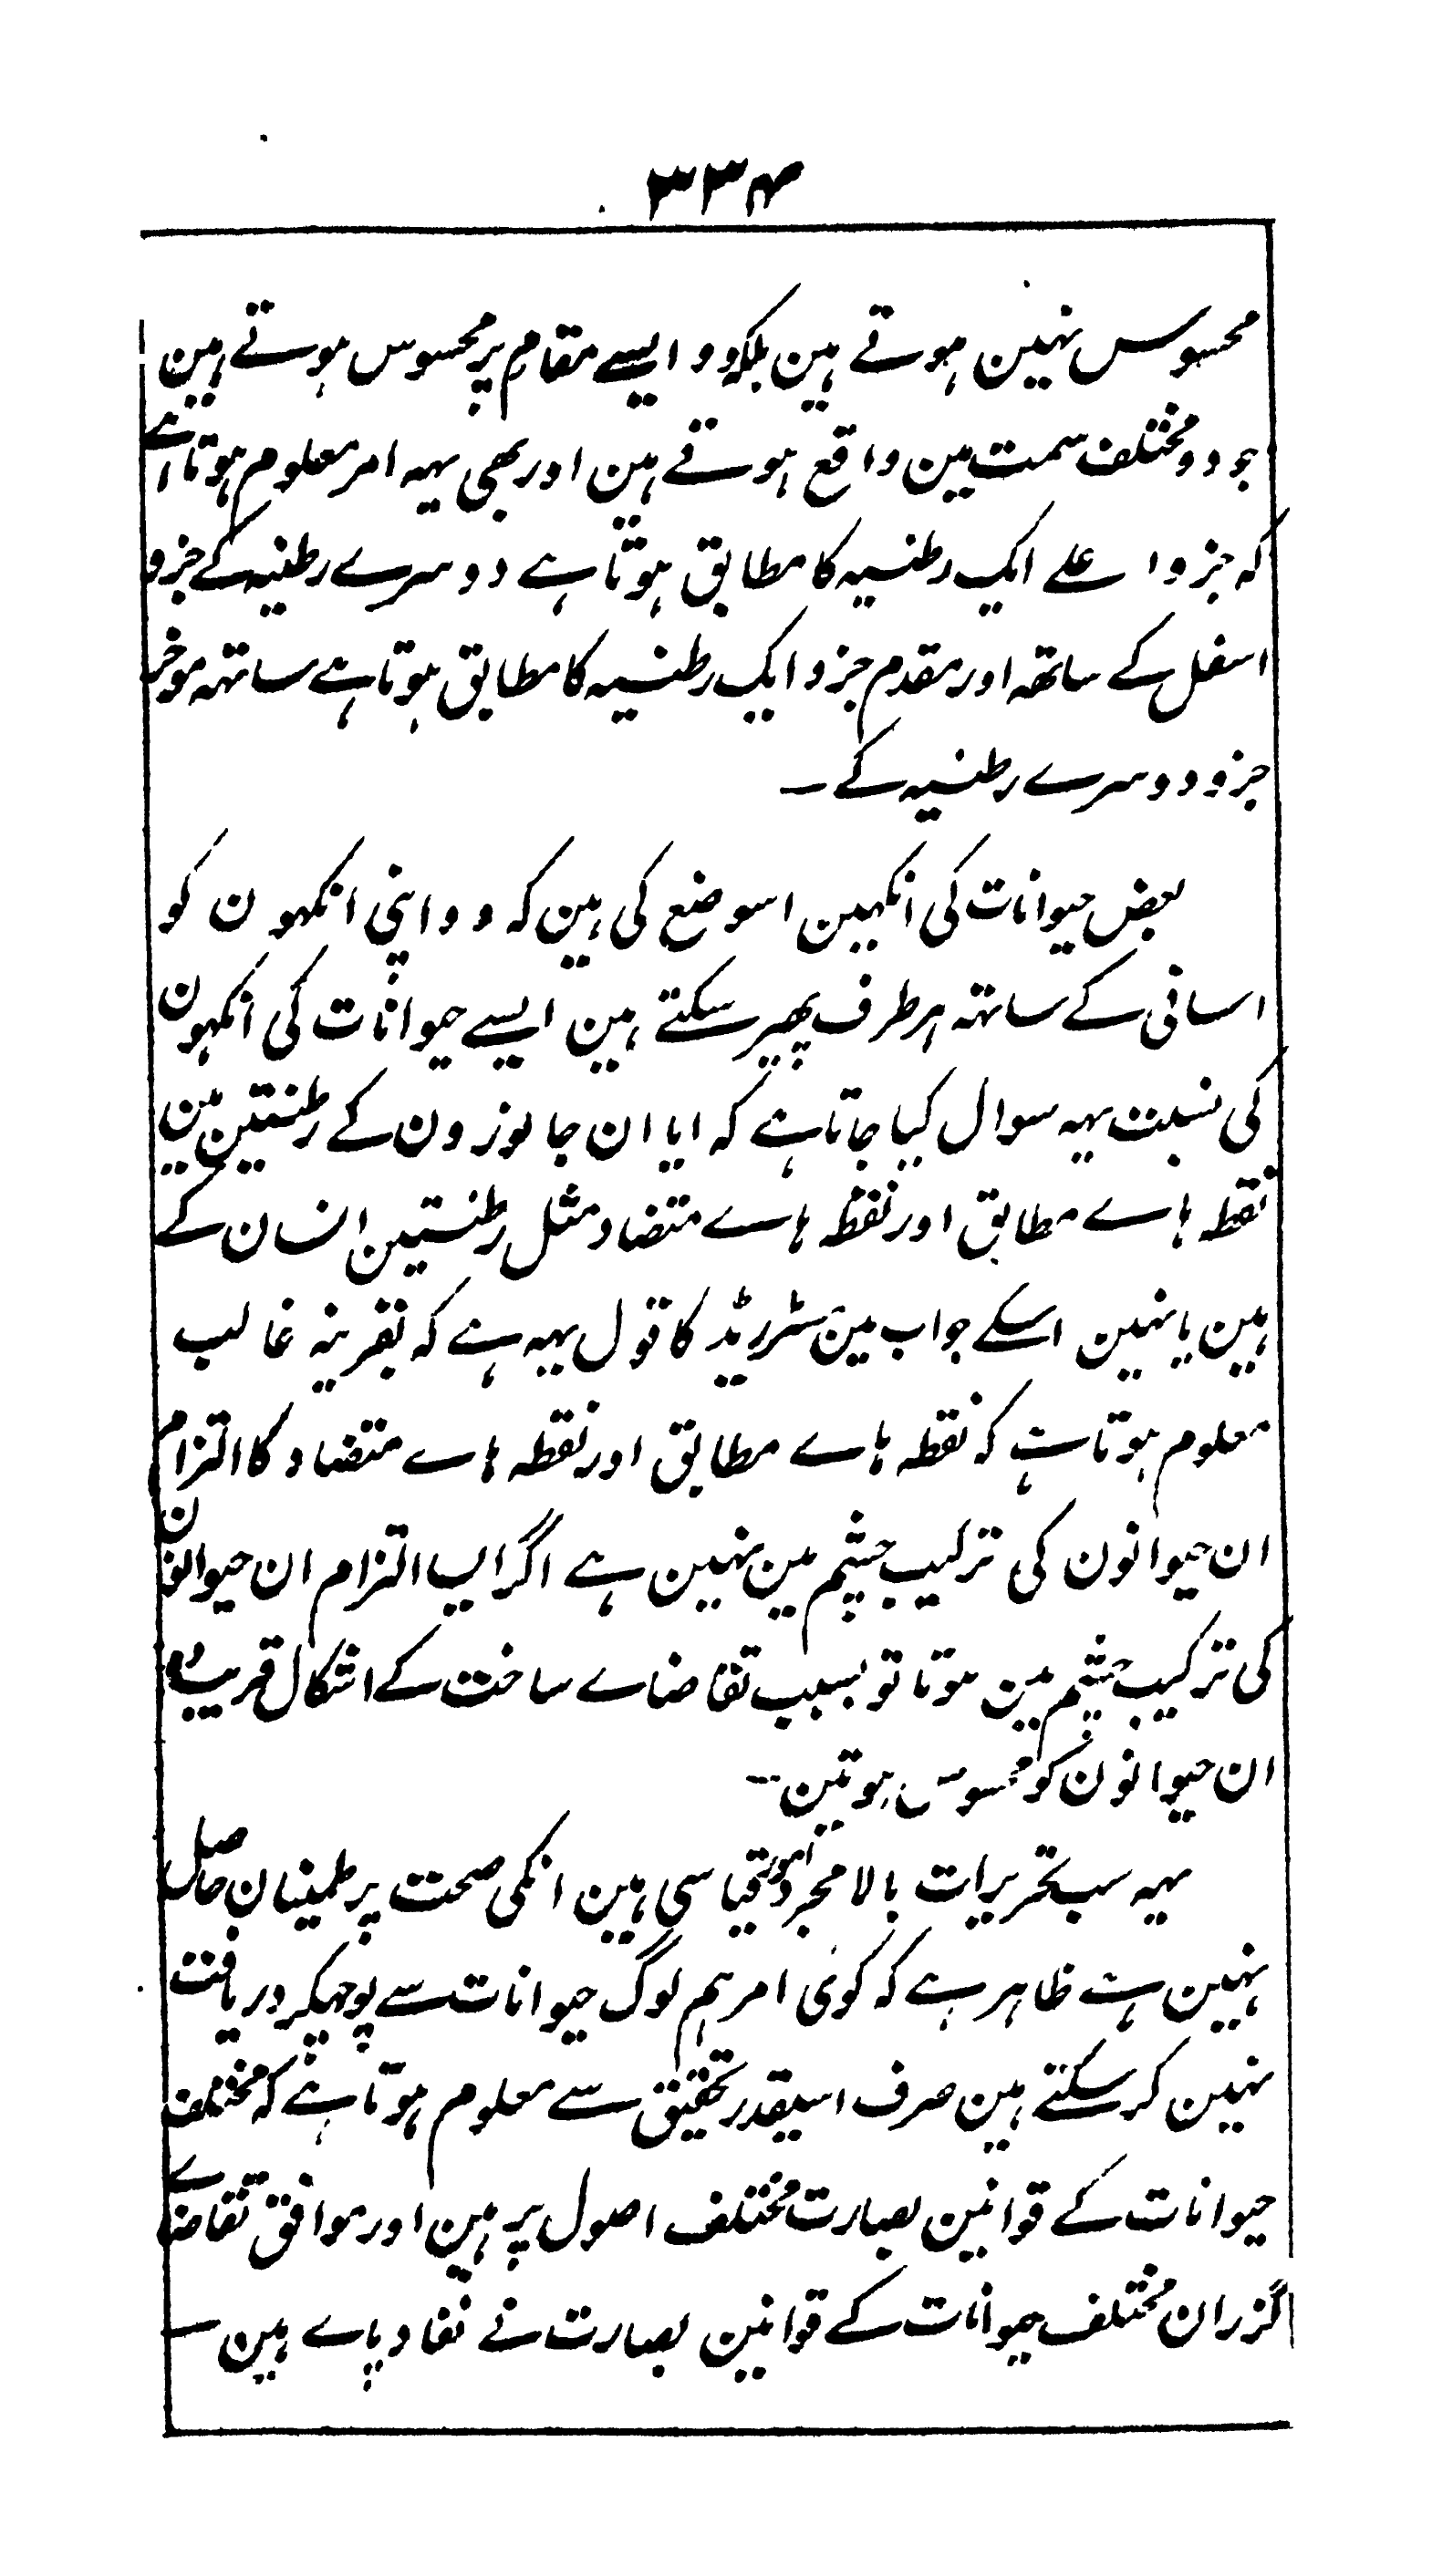 ۳۳۴
محسوس نہین ہوتے ہین بلکہ وو ایسے مقام پر محسوس ہوتے ہین
جو دو مختلف سمت مین واقع ہوتے ہین اور بھی یہہ امر معلوم ہوتا ہے
کہ جزو اعلے ایک رطنیہ کا مطابق ہوتا ہے دوسرے رطنیہ کے جزو
اسفل کے ساتھہ اور مقدم جزو ایک رطنیہ کا مطابق ہوتا ہے ساتہہ موخر
جزو دوسرے رطنیہ کے ـ
بعض حیوانات کی انکہین اسوضع کی ہین کہ وو اپنی انکہون کو
اسانی کے ساتہہ ہر طرف پھیر سکتے ہین ایسے حیوانات کی انکہون
کی نسبت یہہ سوال کیا جاتا ہے کہ ایا ان جانورون کے رطنتین مین
نقطہ ہاے مطابق اور نقطہ ہاے متضاد مثل رطنتین انسان کے
ہین یا نہین اسکے جواب مین سٹر ریڈ کا قول یہہ ہے کہ بقرینہ غالب
معلوم ہوتا ہے کہ نقطہ ہاے مطابق اور نقطہ ہاے متضاد کا التزام
ان حیوانون کی ترکیب چشم مین نہین ہے اگر ایسا التزام ان حیوانون
کی ترکیب چشم مین ہوتا تو بسبب تقاضاے ساخت کے اشکال قریب
ان حیوانون کو محسوس ہوتین ـ
یہہ سب تحریرات بالا مجرد امور قیاسی ہین انکی صحت پر طمینان حاصل
نہین ہے ظاہر ہے کہ کوئی امر ہم لوگ حیوانات سے پوچھکر دریافت
نہین کر سکتے ہین صرف اسیقدر تحقیق سے معلوم ہوتا ہے کہ مختلف
حیوانات کے قوانین بصارت مختلف اصول پر ہین اور موافق تقاضاے
گزران مختلف حیوانات کے قوانین بصارت نے نفاد پاے ہین ـ